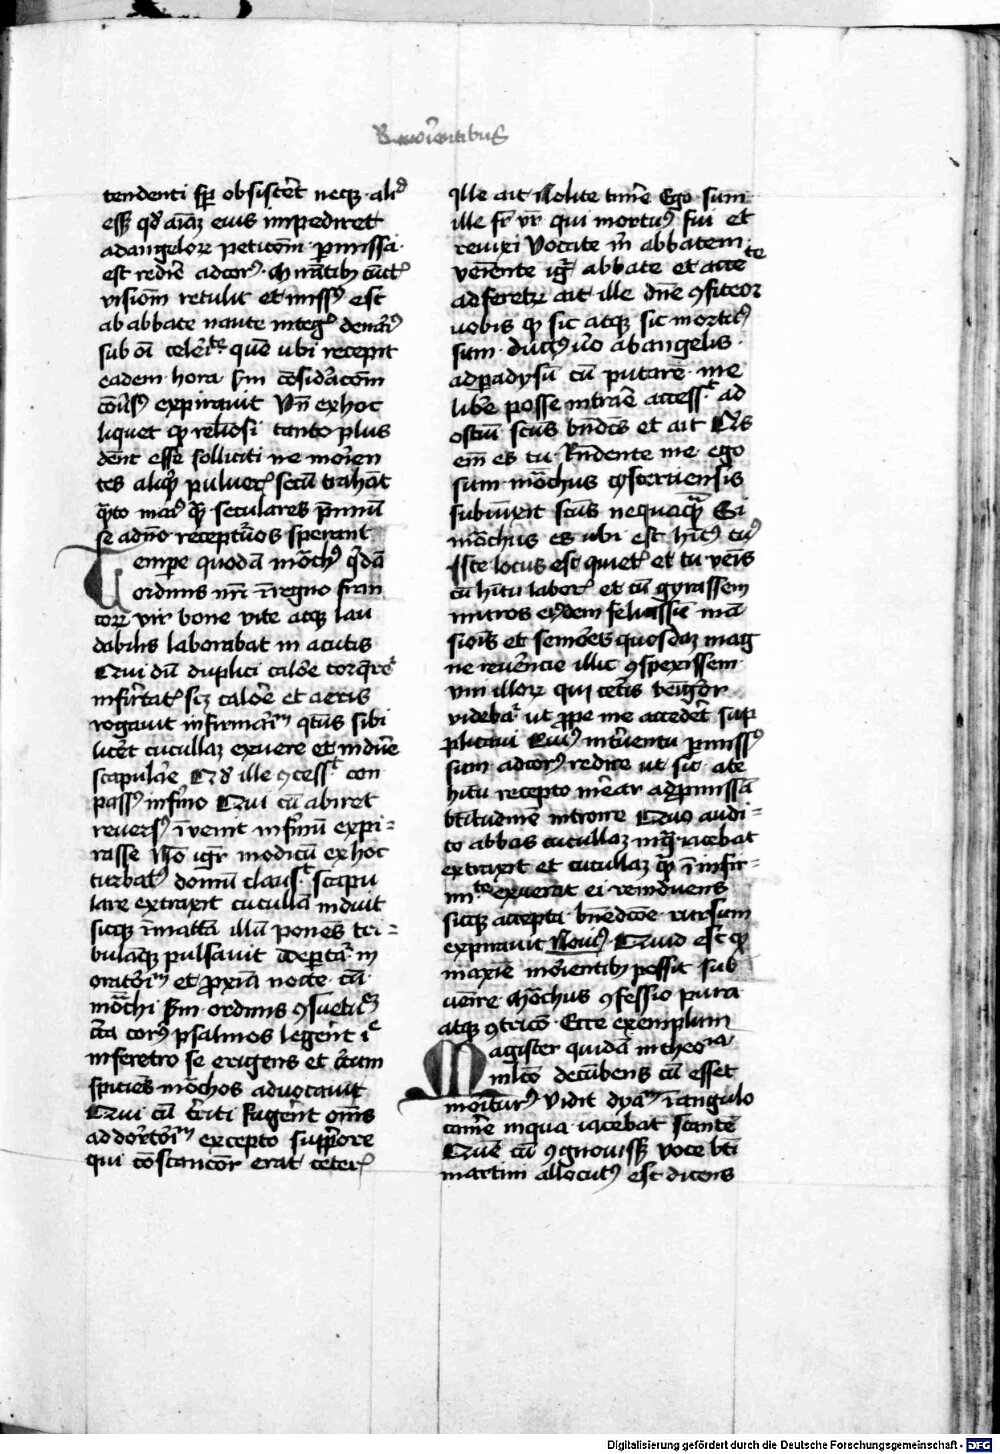 De morientibus
tendenti semper obsisteret neque aliud
esset quod animam eius impediret
ad angelorum peticionem permissa
est redire ad corpus mirantibus cunctis
visionem retulit et missus est
ab abbate naute integer denarius
sub omni celeritate quem ubi recepit
eadem hora secundum consideracionem
conversus expiravit Unde ex hoc
liquet quod religiosi tanto plus
debent esse solliciti ne morien
tes aliquid pulveris secum trahant
quanto magis quam seculares premium
se a domino recepturos sperant
Tempore quodam monachus quidam
ordinis nostri in regno fran
corum vir bone vite atque lau
dabilis laborabat in acutis
Qui dum duplici calore torqueretur
infirmitatis scilicet calore et aeris
rogavit infirmarium quatenus sibi
liceret cucullam exuere et induere
scapulare Quod ille concessit con
passus infirmo Qui cum abiret
reversus invenit infirmum expi-
rasse Non igitur modicum ex hoc
turbatus domum clausit scapu
lare extraxit cucullam induit
sicque in mattam illum ponens tra-
bulamque pulsavit Deportatur in
oratorium et proxima nocte cum
monachi secundum ordinis consuetudinem
circa corpus psalmos legerent ille
in feretro se erigens et circum
spiciens monachos advocavit
Qui cum territi fugerent omnes
ad dormitorium excepto suppriore
qui constancior erat ceteris
Ille ait Nolite timere Ego sum
ille frater vester qui mortuus fui et
revixi Vocate mihi abbatem
veniente igitur abbate et accedente
ad feretrum ait ille domine confiteor
vobis quod sic atque sic mortuus
sum ductus vero ab angelis
ad paradysum cum putarem me
libere posse intrare accessit ad
ostium sanctus benedictus et ait Quis
enim es tu Respondente me ego
sum monachus cysterciensis
subiunxit sanctus nequaquam Si
monachus es ubi est habitus tuus
Iste locus est quietis et tu venis
cum habitu laboris et cum gyrassem
muros eiusdem felicissime man
sionis et seniores quosdam mag
ne reverencie illic conspexissem
uni illorum qui ceteris benignior
videbatur ut prope me accederet sup
plicavi Cuius interventu permissus
sum ad corpus redire ut sic a te
habitu recepto merear ad promissam
beatitudinem introire Quo audi-
to abbas cucullam in qua iacebat
extraxit et cucullam quam in infir-
mitate exuerat ei reinduens
sicque accepta benedictione rursum
expiravit Novicius Quid est quod
maxime morientibus possit sub
venire Monachus confessio pura
atque contricio Ecce exemplum
Magister quidam in theologia
in lecto decumbens cum esset
moriturus vidit dyabolum in angulo
camere in qua iacebat stantem
Quem cum cognovisset voce beati
martini allocutus est dicens
Digitalisierung gefördert durch die Deutsche Forschungsgemeinschaft - DFG